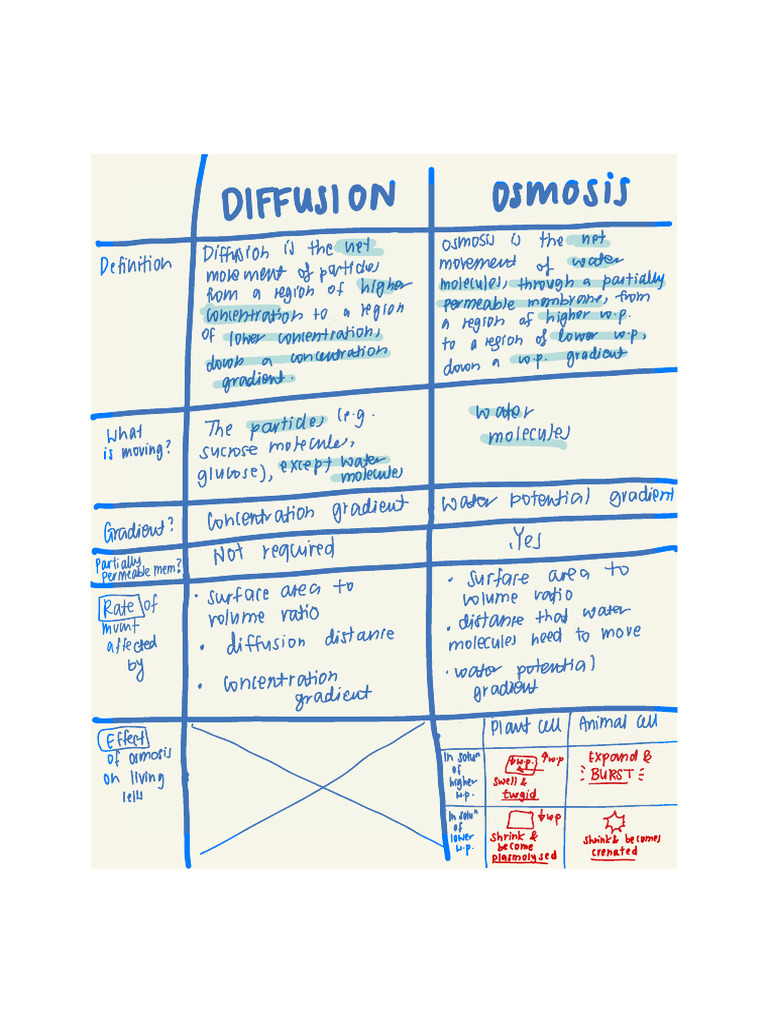 DIFFUSION
OSMOSIS
Definition
Diffusion is the net
movement of particles
from a region of higher
concentration to a region
of lower concentration,
down a concentration
gradient.
osmosis is the net
movement of water
molecules, through a partially
permeable membrane, from
a region of higher w.p.
to a region of lower w.p,
down a w.p. gradient
What
is moving?
The particles (e.g.
sucrose molecules,
glucose), except water
molecules
water
molecules
Gradient?
Concentration gradient
Water potential gradient
Partially
permeable mem?
Not required
Yes
Rate of
mvmt
affected
by
• surface area to
volume ratio
• diffusion distance
• concentration
gradient
• surface area to
volume ratio
• distance that water
molecules need to move
• water potential
gradient
Effect
of osmosis
on living
cells
Plant cell
Animal cell
In soluⁿ
of
higher
w.p.
↓w.p.
↑w.p
swell &
turgid
Expand &
BURST
In soluⁿ
of
lower
w.p.
↓w.p
shrink &
become
plasmolysed
shrink & becomes
crenated